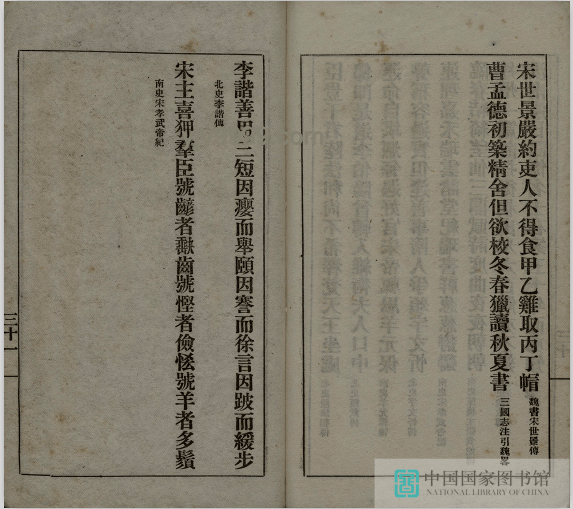 宋世景嚴約吏人不得食甲乙雞取丙丁帽 魏書宋世景傳
曹孟德初築精舍但欲校冬春獵讀秋夏書 三國志注引魏畧
李諧善用三短因癭而舉頤因謇而徐言因跛而緩步
北史李諧傳
宋主喜狎羣臣號齴者齒號慳者儉號羊者多鬚
南史宋孝武帝紀
三十一
中国国家图书馆
NATIONAL LIBRARY OF CHINA